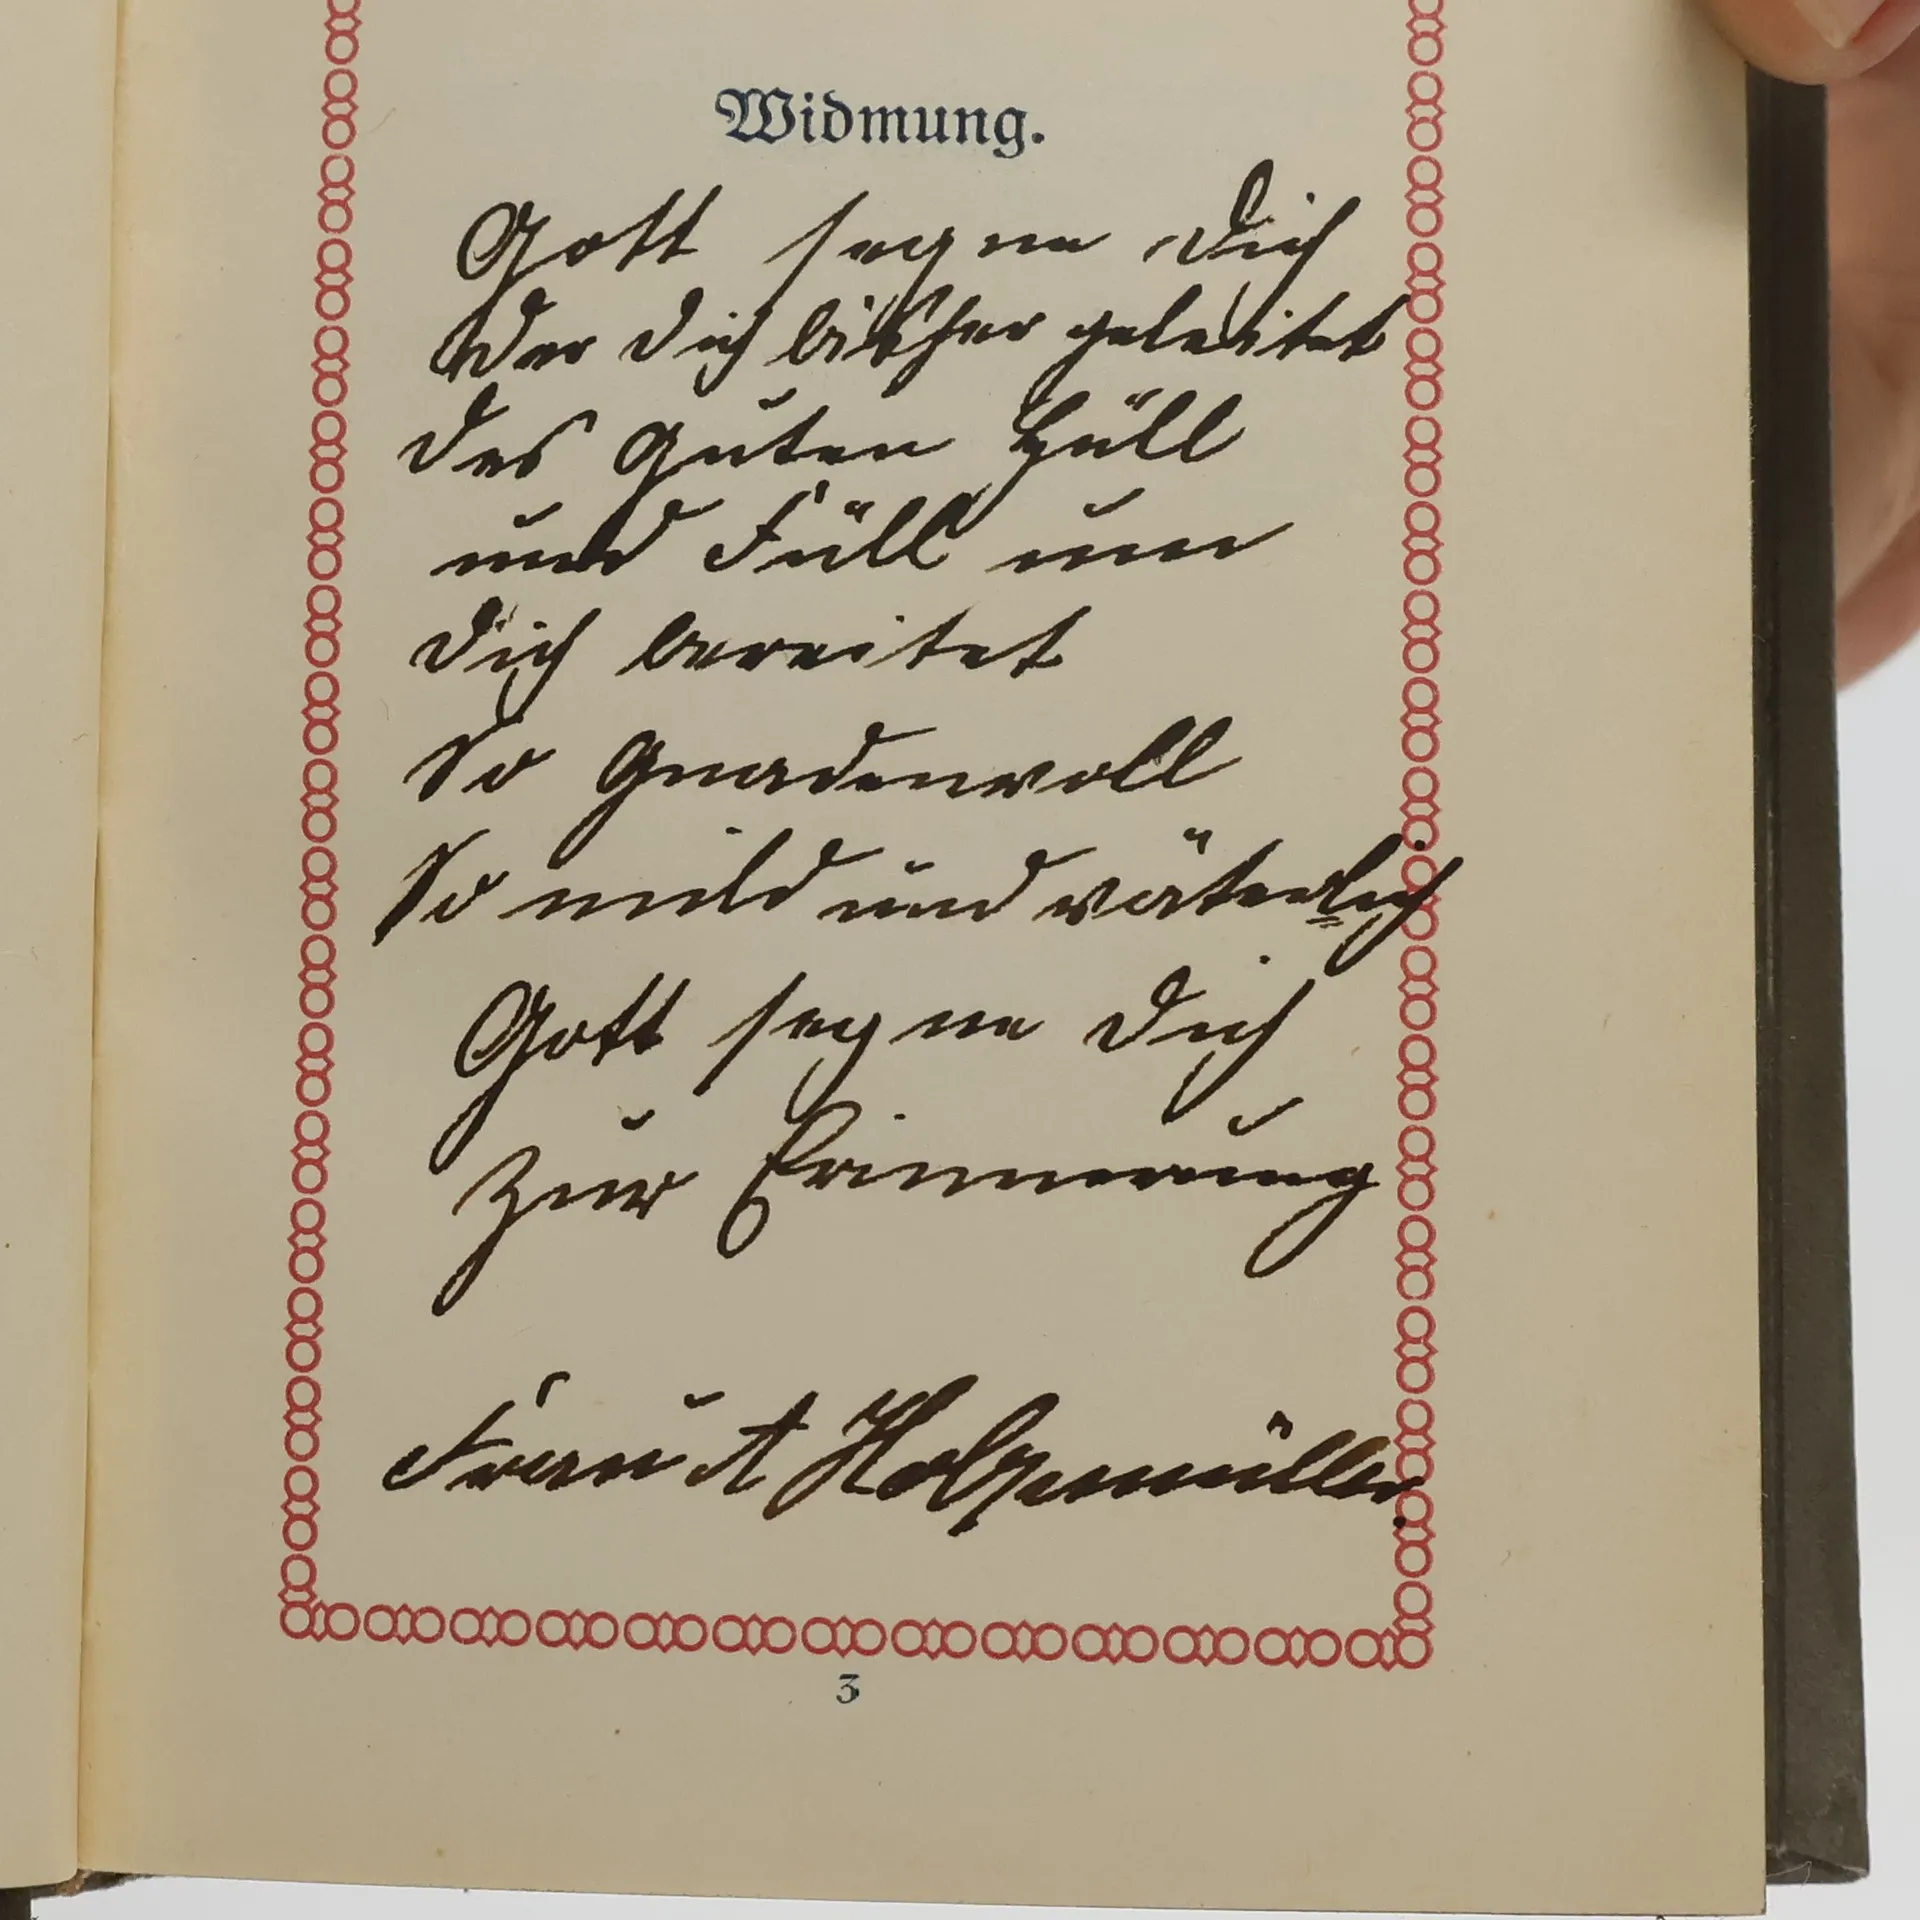 Widmung.
Gott segne Dich
Der Dich bisher geleitet
des Guten Hüll
und Füll um
Dich bereitet
So Gnadenvoll
So mild und väterlich
Gott segne Dich
Zur Erinnerung
Frau A Holzmüller
3